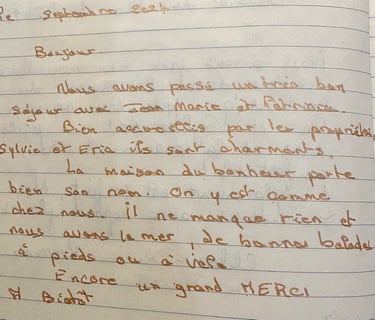 Le Septembre 2024
Bonjour.
Nous avons passé un très bon
séjour avec Jean Marie et Patricia.
Bien accueillis par les propriétaires,
Sylvie et Eric ils sont charmants.
La maison du bonheur porte
bien son nom. On y est comme
chez nous. il ne manque rien et
nous avons la mer, de bonnes balades
à pieds ou à vélo
Encore un grand MERCI
A Bientôt